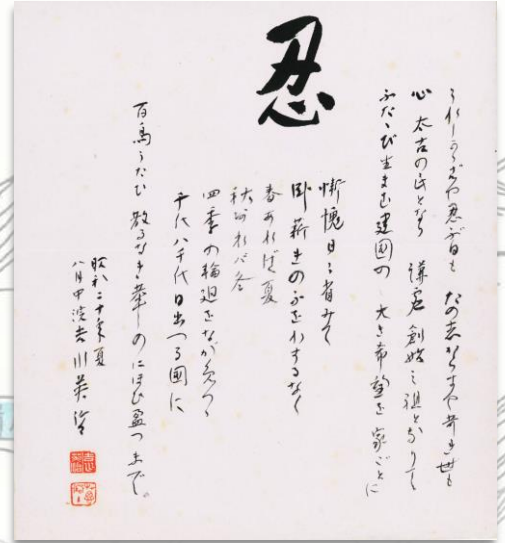 忍
うれしからずや忍ぶ日も たの志からずや辛き世も
心 太古の民となり 謙虚 創始の祖となりて
ふたゝび生まむ建國の 大き希望を 家ごとに
慚愧日に省みて
臥薪きのふをわするなく
春あれば夏
秋あれバ冬
四季の輪廻をながめつゝ
千代八千代日出づる國に
百鳥うたひ 散るなき華のにほひ盈つまで。
昭和二十年夏
八月中浣 吉川英治